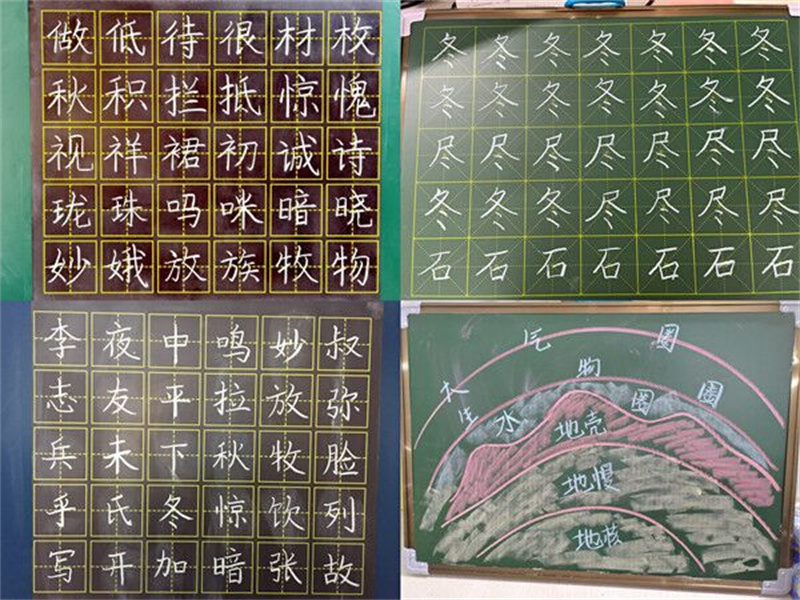 做低待很材枚
秋积拦抵惊愧
视祥裙初诚诗
珑珠吗咪暗晓
妙娥放族牧物
冬冬冬冬冬冬冬
冬冬冬冬冬冬冬
尽尽尽尽尽尽尽
冬冬冬尽尽尽尽
石石石石石石石
李夜中鸣妙叔
志友平拉放弥
兵未下秋牧脸
乎氏冬惊饮列
写开加暗张故
大气圈
生物圈
水圈
地壳
地慢
地核